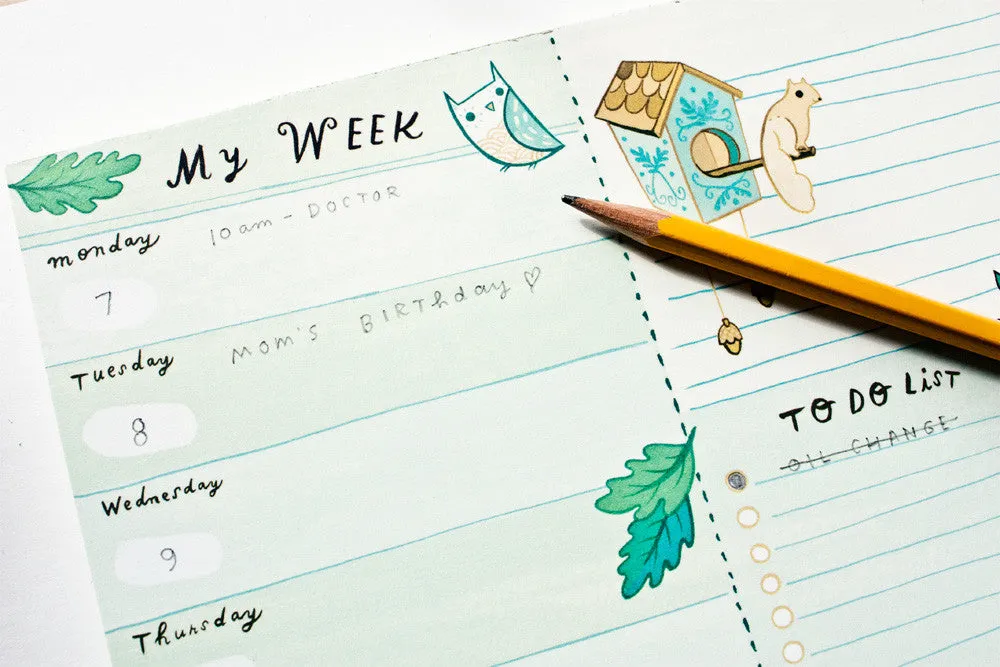 My WEEK
monday
10am - DOCTOR
7
Tuesday
MOM'S BIRThday ♡
8
Wednesday
9
Thursday
TO DO LIST
OIL CHANGE